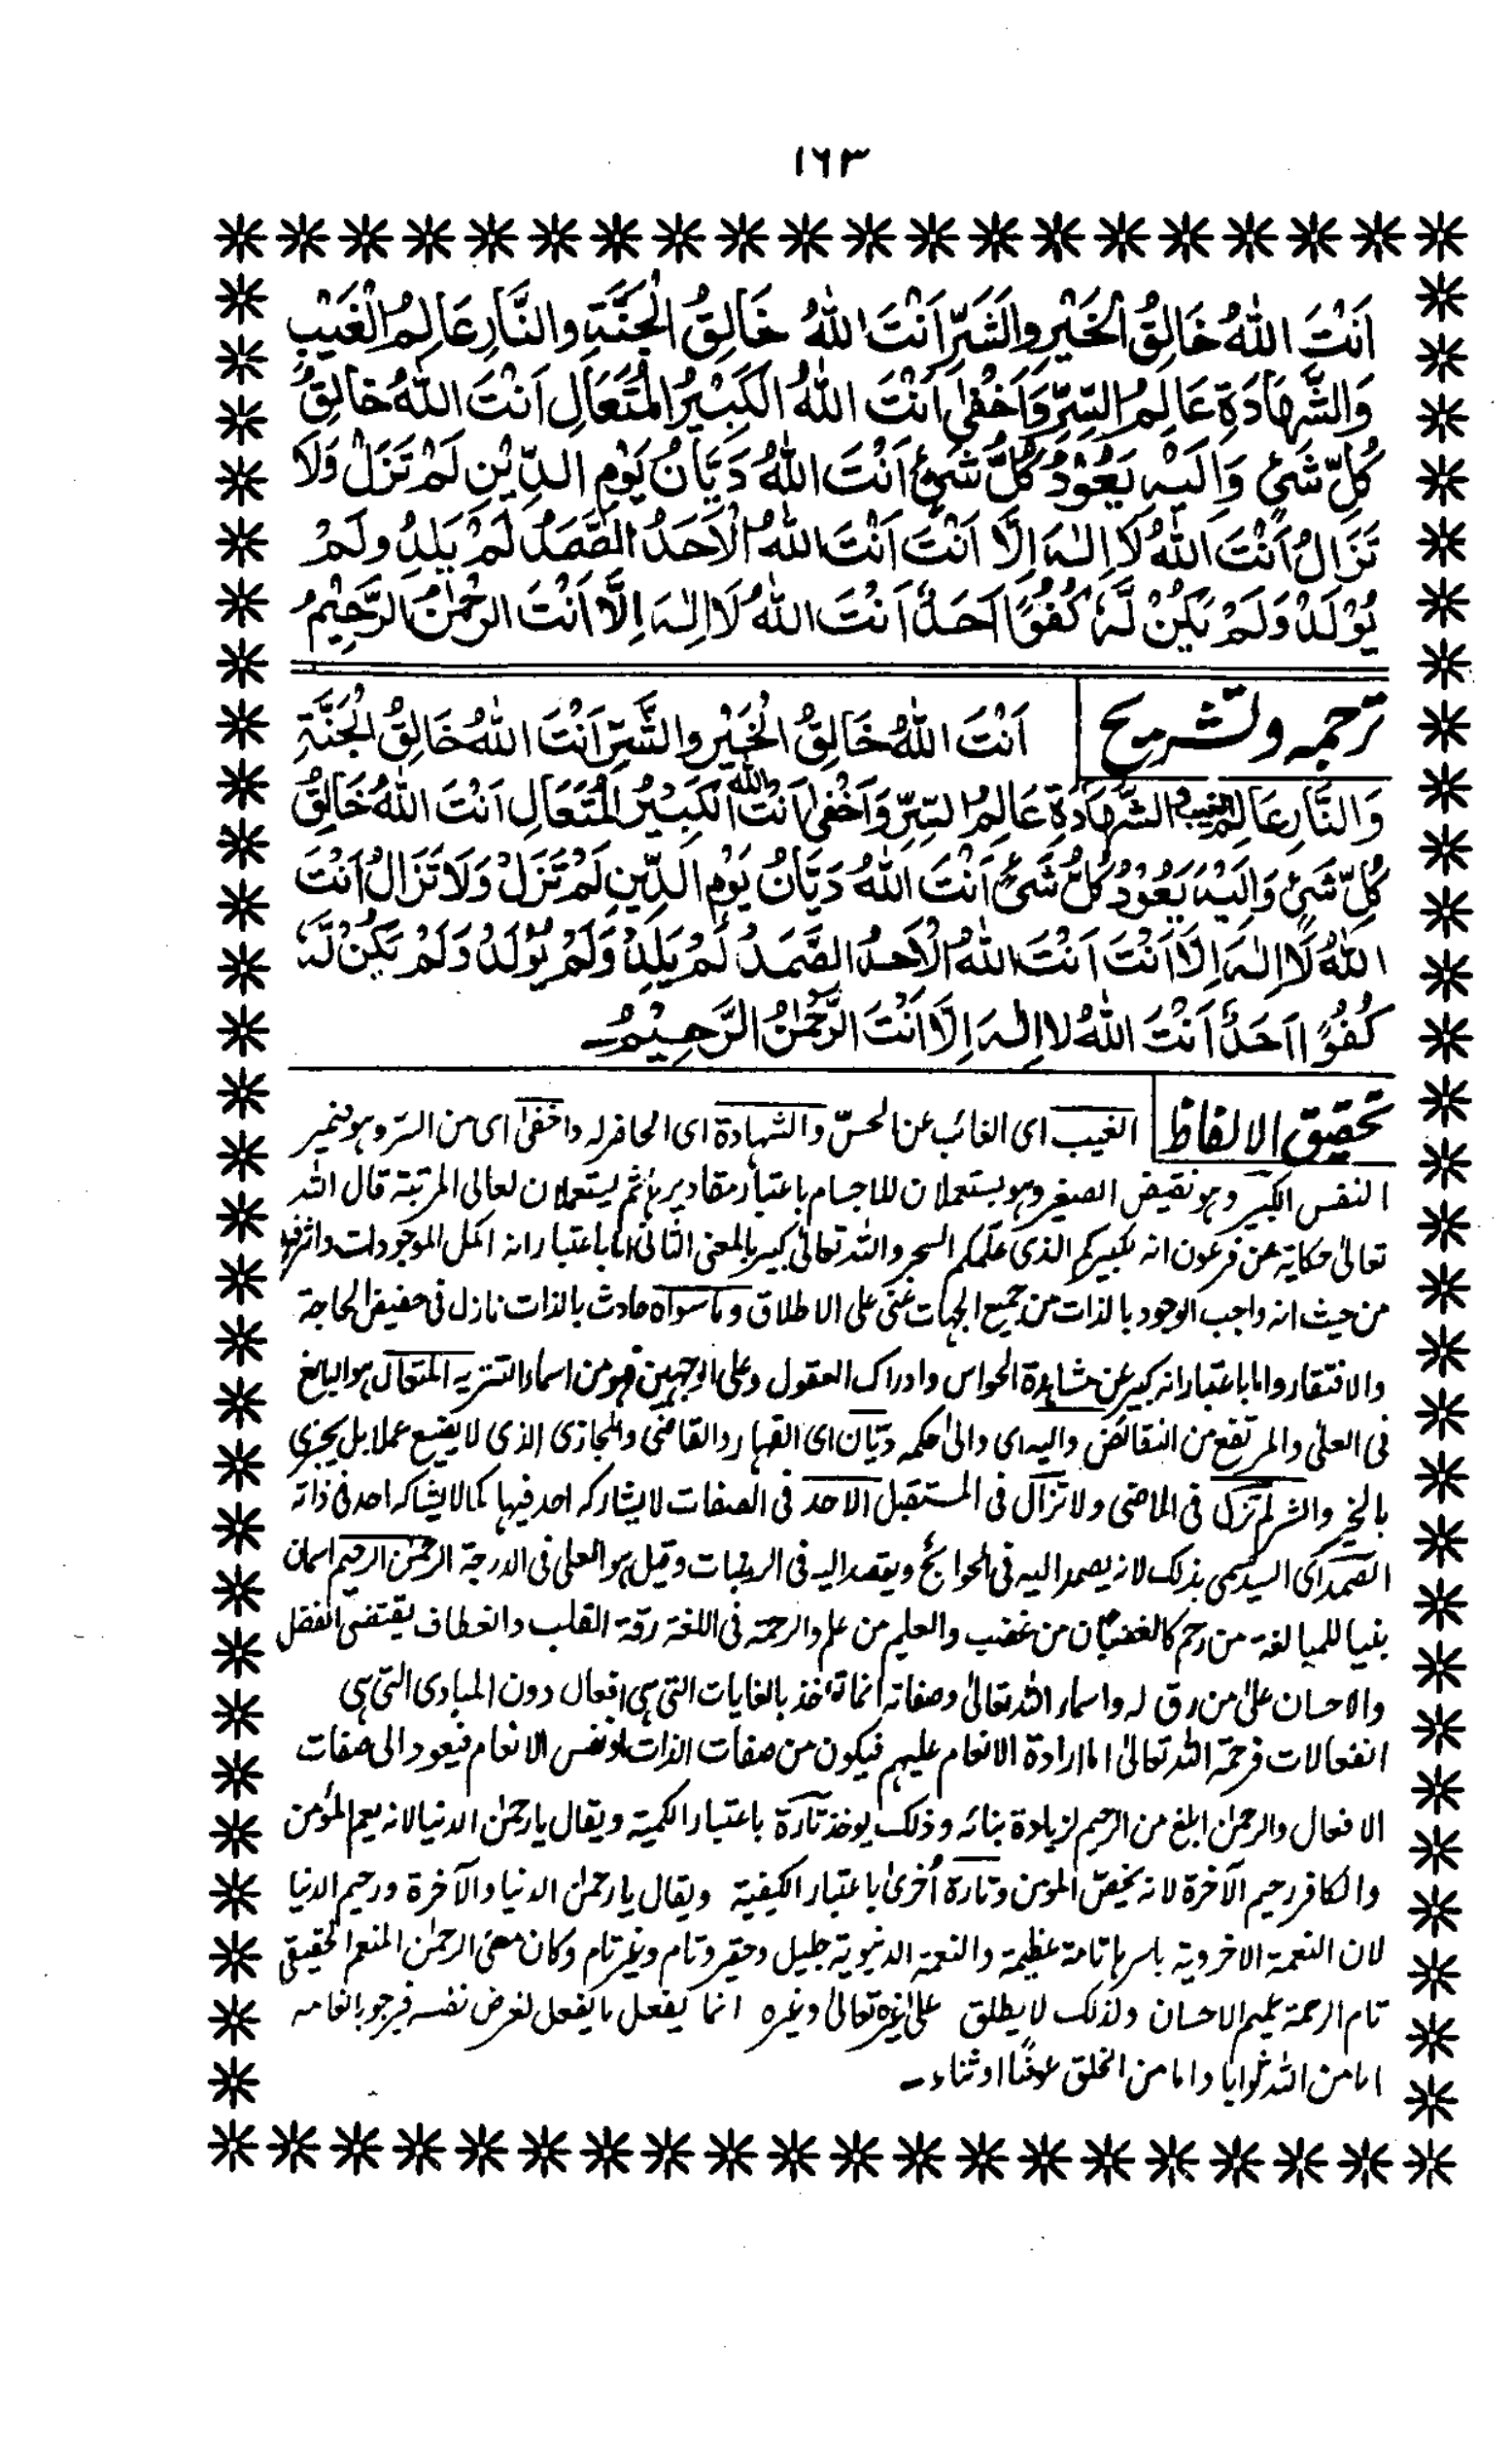 ١٦٣
اَنْتَ اللهُ خَالِقُ الْخَيْرِ وَالشَّرِّ اَنْتَ اللهُ خَالِقُ الْجَنَّةِ وَالنَّارِ عَالِمُ الْغَيْبِ
وَالشَّهَادَةِ عَالِمُ السِّرِّ وَاَخْفٰى اَنْتَ اللهُ الْكَبِيْرُ الْمُتَعَالِ اَنْتَ اللهُ خَالِقُ
كُلِّ شَيْءٍ وَاِلَيْهِ يَعُوْدُ كُلُّ شَيْءٍ اَنْتَ اللهُ دَيَّانُ يَوْمِ الدِّيْنِ لَمْ تَزَلْ وَلَا
تَزَالُ اَنْتَ اللهُ لَا اِلٰهَ اِلَّا اَنْتَ اَنْتَ اللهُ الْاَحَدُ الصَّمَدُ لَمْ يَلِدْ وَلَمْ
يُوْلَدْ وَلَمْ يَكُنْ لَّهٗ كُفُوًا اَحَدٌ اَنْتَ اللهُ لَا اِلٰهَ اِلَّا اَنْتَ الرَّحْمٰنُ الرَّحِيْمُ
ترجمہ وتشریح اَنْتَ اللهُ خَالِقُ الْخَيْرِ وَالشَّرِّ اَنْتَ اللهُ خَالِقُ الْجَنَّةِ
وَالنَّارِ عَالِمُ الْغَيْبِ وَالشَّهَادَةِ عَالِمُ السِّرِّ وَاَخْفٰى اَنْتَ اللهُ الْكَبِيْرُ الْمُتَعَالِ اَنْتَ اللهُ خَالِقُ
كُلِّ شَيْءٍ وَاِلَيْهِ يَعُوْدُ كُلُّ شَيْءٍ اَنْتَ اللهُ دَيَّانُ يَوْمِ الدِّيْنِ لَمْ تَزَلْ وَلَا تَزَالُ اَنْتَ
اللهُ لَا اِلٰهَ اِلَّا اَنْتَ اَنْتَ اللهُ الْاَحَدُ الصَّمَدُ لَمْ يَلِدْ وَلَمْ يُوْلَدْ وَلَمْ يَكُنْ لَّهٗ
كُفُوًا اَحَدٌ اَنْتَ اللهُ لَا اِلٰهَ اِلَّا اَنْتَ الرَّحْمٰنُ الرَّحِيْمُ۔
تحقیق الالفاظ الغیب ای الغائب عن الحسّ والشہادۃ ای الحاضر لہ واخفیٰ ای من السرّ وہو ضمیر
النفس الکبیر وہو نقیض الصغیر وہو یستعملان للاجسام باعتبار مقادیرہا ثم یستعملان لعالی المرتبۃ قال اللہ
تعالیٰ حکایۃ عن فرعون انہ لکبیرکم الذی علّمکم السحر واللہ تعالیٰ کبیر بالمعنی الثانی اما باعتبار انہ اکمل الموجودات واشرفہا
من حیث انہ واجب الوجود بالذات من جمیع الجہات غنی علی الاطلاق وما سواہ حادث بالذات نازل فی حضیض الحاجۃ
والافتقار واما باعتبار انہ کبیر عن مشاہدۃ الحواس وادراک العقول وعلی الوجہین فہو من اسماء التنزیہ المتعال ہو البالغ
فی العلیٰ والمرتفع من النقائص والیہ ای والیٰ حکمہ دیّان ای القہار والقاضی والمجازی الذی لا یضیع عملا بل یجزی
بالخیر والشر لم تزل فی الماضی ولا تزال فی المستقبل الاحد فی الصفات لا یشارکہ احد فیہا کما لا یشاکہ احد فی ذاتہ
الصمد ای السید سمی بذلک لانہ یصمد الیہ فی الحوائج ویقصد الیہ فی الرغبات وقیل ہو العلی فی الدرجۃ الرحمٰن الرحیم اسمان
بنیا للمبالغۃ من رحم کالغضبان من غضب والعلیم من علم والرحمۃ فی اللغۃ رقۃ القلب وانعطاف یقتضی الفضل
والاحسان علیٰ من رق لہ واسماء اللہ تعالیٰ وصفاتہ انما توخذ بالغایات التی ہی افعال دون المبادی التی ہی
انفعالات فرحمۃ اللہ تعالیٰ اما ارادۃ الانعام علیہم فیکون من صفات الذات او نفس الانعام فیعود الی صفات
الافعال والرحمٰن ابلغ من الرحیم لزیادۃ بنائہ وذلک یوخذ تارۃ باعتبار الکمیۃ ویقال یا رحمٰن الدنیا لانہ یعم المؤمن
والکافر رحیم الآخرۃ لانہ یخصّ المومن وتارۃ اُخریٰ باعتبار الکیفیۃ ویقال یا رحمٰن الدنیا والآخرۃ ورحیم الدنیا
لان النعمۃ الاخرویۃ باسرہا تامۃ عظیمۃ والنعمۃ الدنیویۃ جلیل وحقیر وتام وغیر تام وکان معنی الرحمٰن المنعم الحقیقی
تام الرحمۃ عمیم الاحسان ولذلک لا یطلق علیٰ غیرہ تعالیٰ وغیرہ انما یفعل ما یفعل لغرض نفسہ فیرجو بانعامہ
اما من اللہ ثوابا واما من الخلق عوضًا او ثناء۔